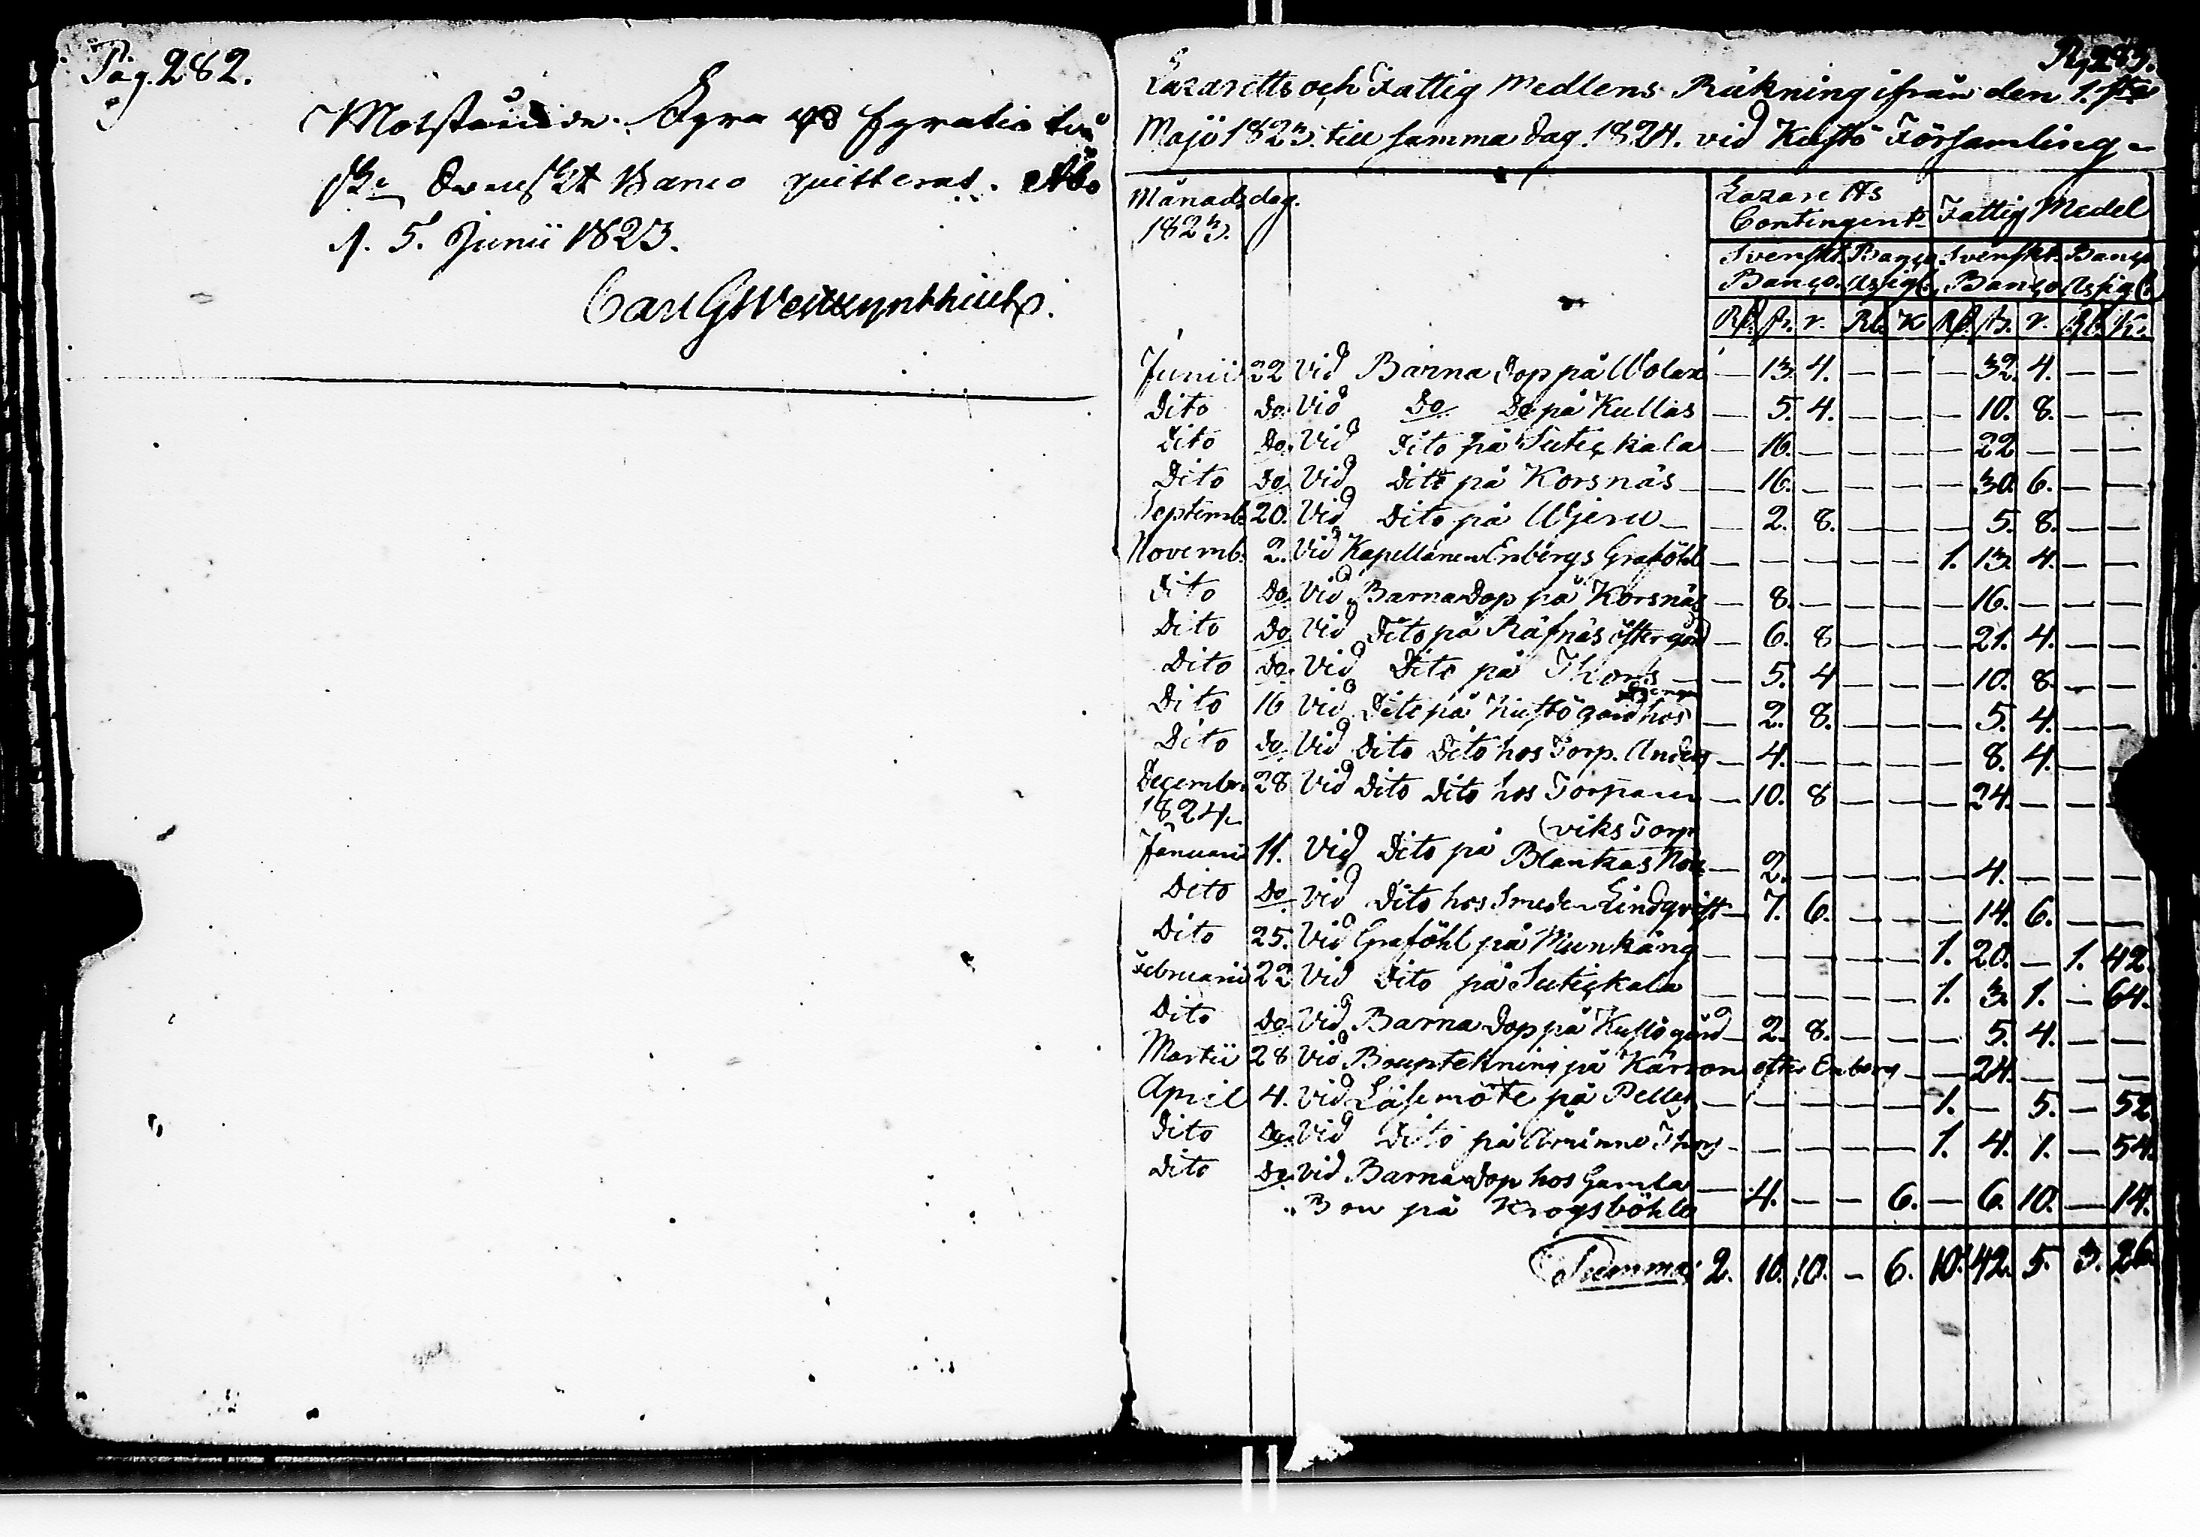 Pag. 282.
Motstående Fyra Rd Fyratio två
sk. Svenskt Banco qvitteras. Åbo
d. 5. Junii 1823.
Carl G
Pag. 283.
Lazaretts och Fattig Medlens Räkning ifrån den 1.sta
Maji 1823. till samma dag 1824. vid Kustö Församling
Månad. dag. Lazaretts Fattig Medel
1823. Contingent.
Svenskt Banco Svenskt Banco
Banco. Assign. Banco Assign.
Rd. sk. r. Rb. K Rd. sk. r. Rb. K.
Junii 22 Vid Barna dop på Wolax — 13. 4. — — — 32. 4. — —
Dito do. Vid do do på Kullas — 5. 4. — — — 10. 8. — —
Dito do. Vid Dito på — 16. — — — — 22 — — —
Dito do. Vid Dito på Korsnäs — 16. — — — — 30. 6. — —
Septemb. 20. Vid Dito på — 2. 8. — — — 5. 8. — —
Novemb. 2. Vid Kapellanen Enbergs Graföhl — — — — — 1. 13. 4. — —
Dito do. Vid Barna dop på Korsnäs — 8. — — — — 16. — — —
Dito do. Vid Dito på Räfnäs öftergård — 6. 8 — — — 21. 4. — —
Dito do. Vid Dito på Thors — 5. 4 — — — 10. 8. — —
Dito 16 Vid Dito på Kustö gård hos — 2. 8. — — — 5. 4. — —
Dito do. Vid Dito Dito hos Torp. Anders — 4. — — — — 8. 4. — —
Decembr. 28 Vid Dito Dito hos Torparen — 10. 8 — — — 24. — — —
1824.
(viks Torp
Januarii 11. Vid Dito på Blankas — 2. — — — — 4. — — —
Dito do. Vid Dito hos Smeden Lindqvist — 7. 6. — — — 14. 6. — —
Dito 25. Vid Graföhl på Munkäng — — — — — 1. 20. — 1. 42.
Februarii 22 Vid Dito på — — — — — 1. 3. 1. — 64.
Dito do. Vid Barna dop på Kustö gård — 2. 8. — — — 5. 4. — —
Martii 28 Vid Bouptekning på Kärron efter Enberg — — 24. — — —
April 4. Vid Läsemöte på Pellas — — — — — 1. — 5. — 52
Dito do. Vid Dito på Thors — — — — — 1. 4. 1. — 54.
Dito do. Vid Barna dop hos Gamla
Bon på Krogsböhle — 4. — — 6. — 6. 10. — 14.
Summa 2. 10. 10. — 6. 10. 42. 5. 3. 26.